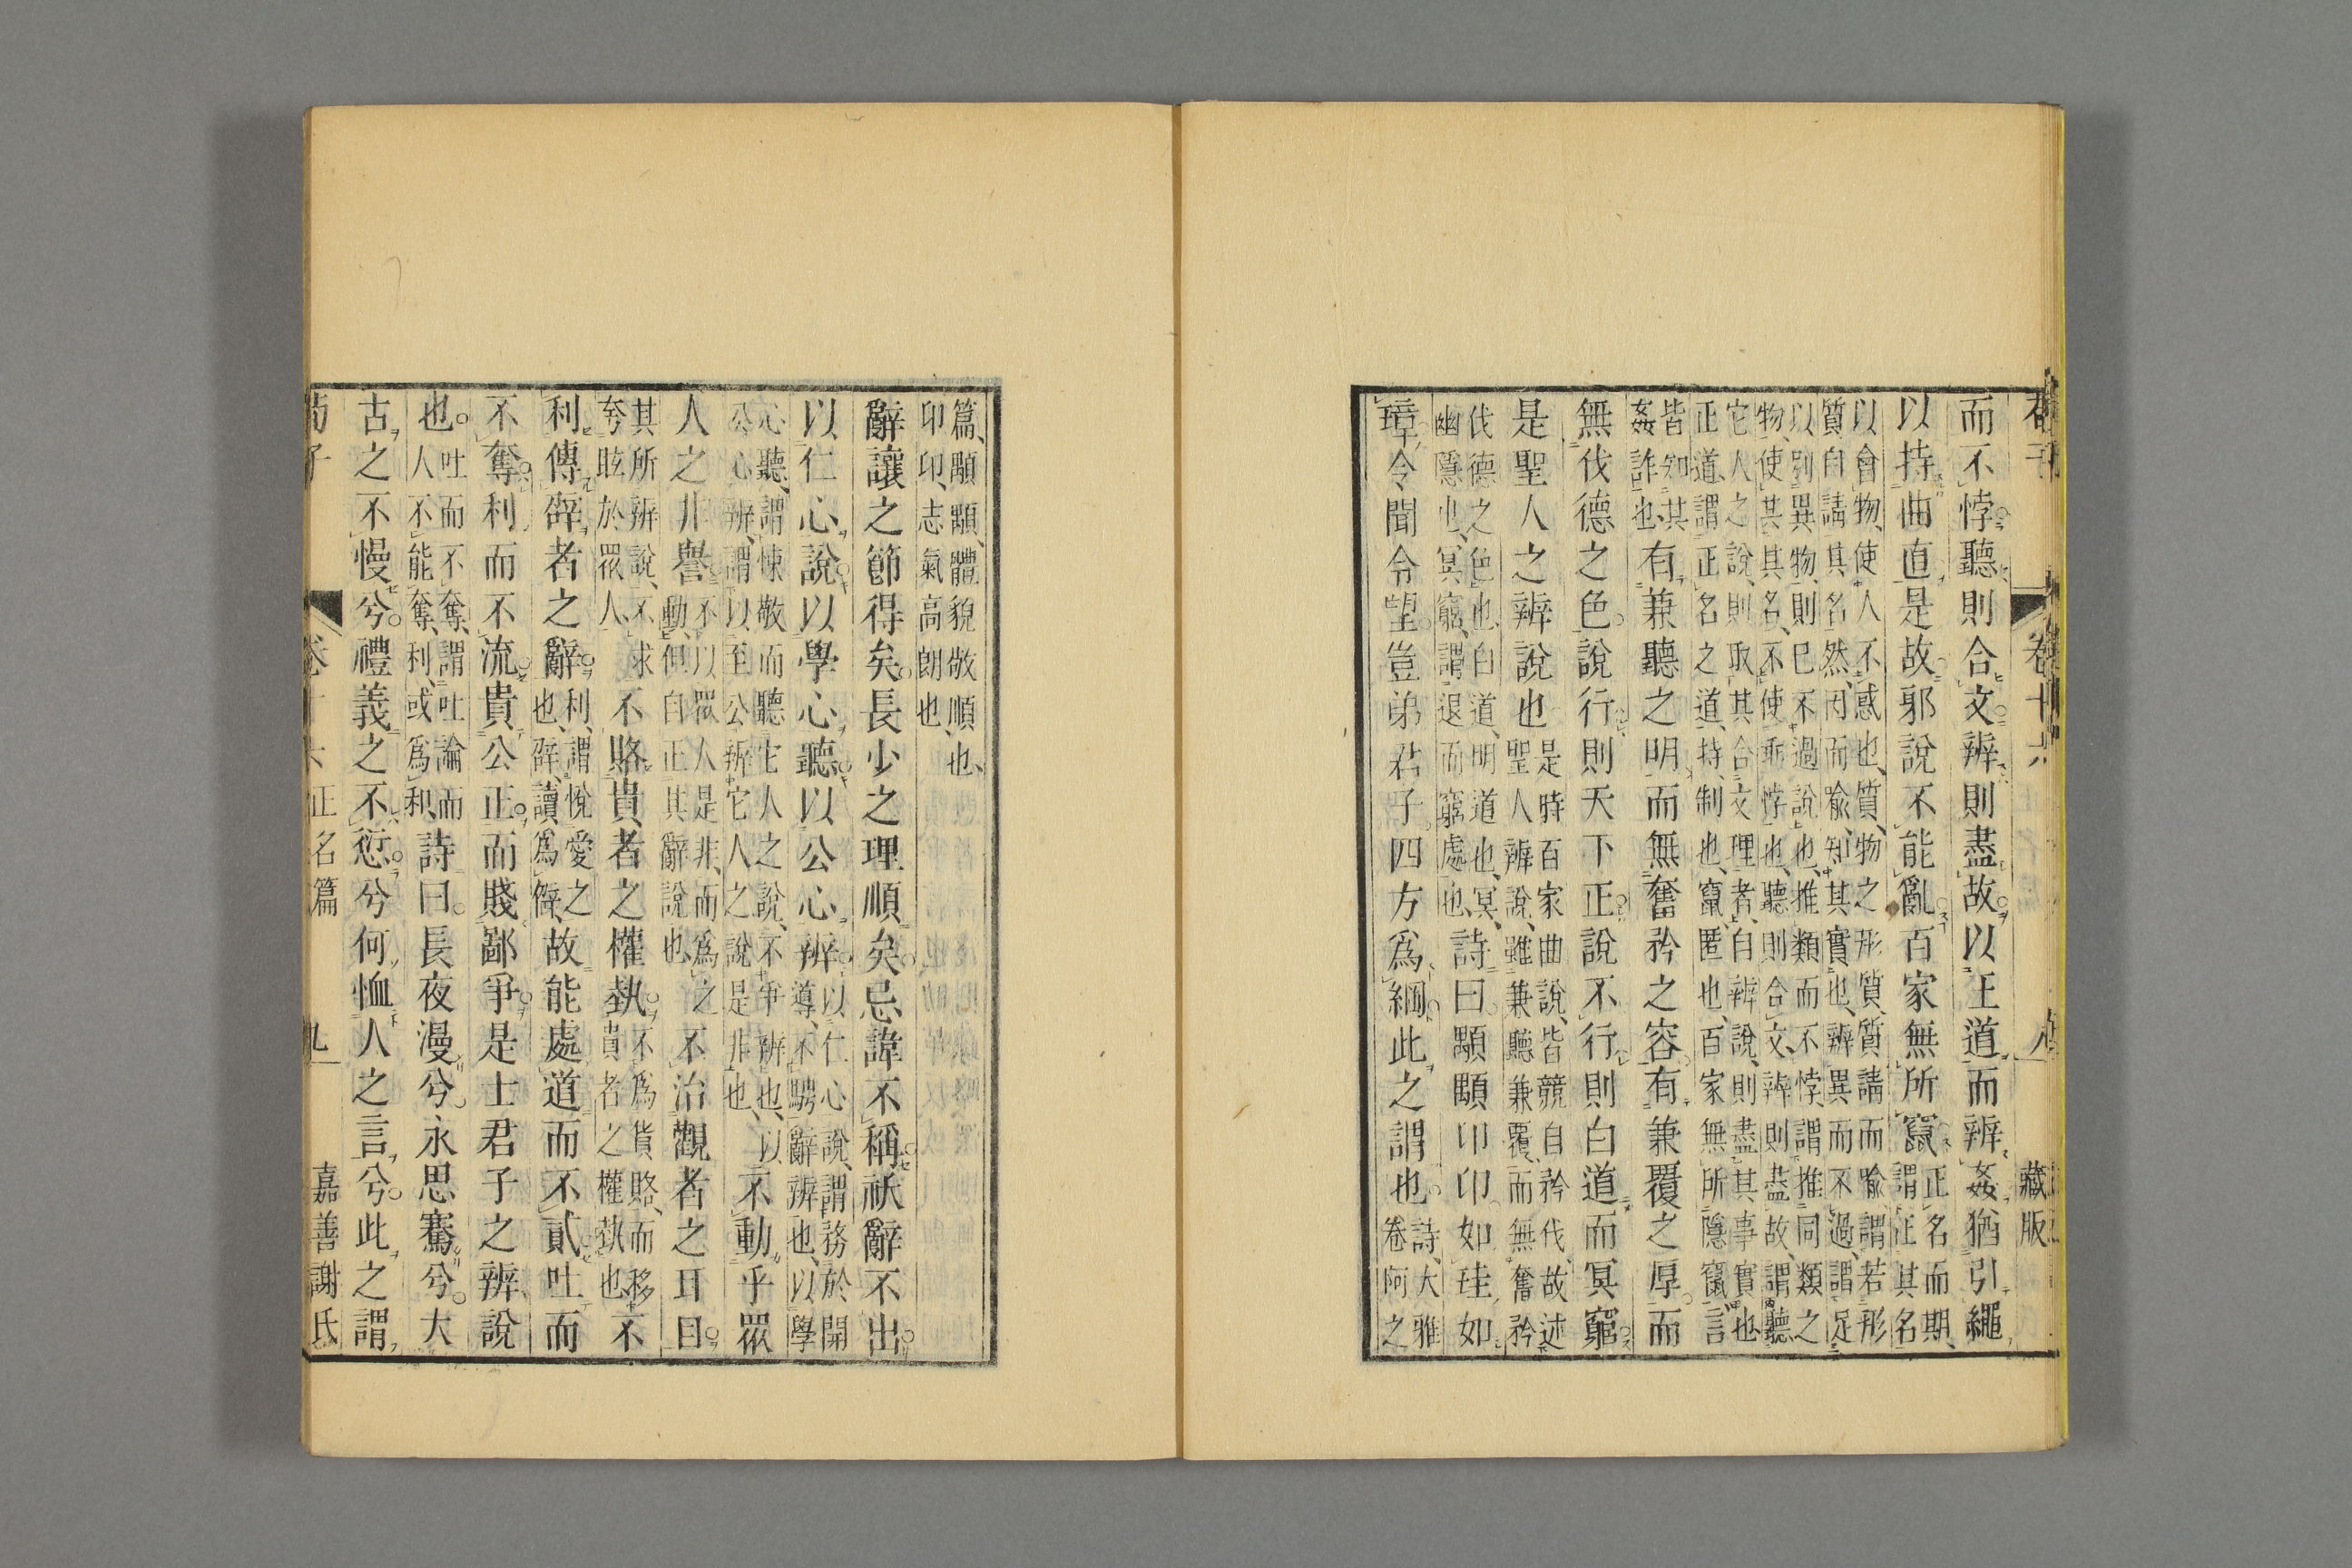 卷十六 八 藏版
而不悖聽則合文辨則盡故以正道而辨姦猶引繩
以持曲直是故邪說不能亂百家無所竄
正名而期、
謂正其名
以會物、使人不惑也、質、物之形質、質請而喻、謂若形
質自請其名然、因而喻、知其實也、辨異而不過、謂足
以別異物、則已不過說也、推類而不悖、謂推同類之
物、使其其名、不使乖悖也、聽則合文、辨則盡故、謂聽
它人之說、則取其合文理者、自辨說、則盡其事實也
正道、謂正名之道、持、制也、竄、匿也、百家無所隱竄、言
皆知其
姦詐也
有兼聽之明而無奮矜之容有兼覆之厚而
無伐德之色說行則天下正說不行則白道而冥窮
是聖人之辨說也
是時百家曲說、皆競自矜伐、故述
聖人辨說、雖兼聽兼覆、而無奮矜
伐德之色也、白道、明道也、冥、
幽隱也、冥窮、謂退而窮處也、
詩曰顒顒卬卬如珪如
璋令聞令望豈弟君子四方爲綱此之謂也
詩、大雅
卷阿之
篇、顒顒、體貌敬順也、
卬卬、志氣高朗也
辭讓之節得矣長少之理順矣忌諱不稱祅辭不出
以仁心說以學心聽以公心辨
以仁心說、謂務於開
導、不騁辭辨也、以學
心聽、謂悚敬而聽它人之說、不爭辨也、以
公心辨、謂以至公辨它人之說是非也、
不動乎眾
人之非譽
不以眾人是非、而爲之
動、但自正其辭說也
不治觀者之耳目
其所辨說、不求
夸眩於眾人
不賂貴者之權埶
不爲貨賂、而移
貴者之權埶也
不
利傳辟者之辭
利、謂悅愛之
也、辟、讀爲僻、
故能處道而不貳吐而
不奪利而不流貴公正而賤鄙爭是士君子之辨說
也
吐而不奪、謂吐論而
人不能奪、利、或爲和、
詩曰長夜漫兮永思騫兮大
古之不慢兮禮義之不愆兮何恤人之言兮此之謂
荀子 卷十六 正名篇 九 嘉善謝氏